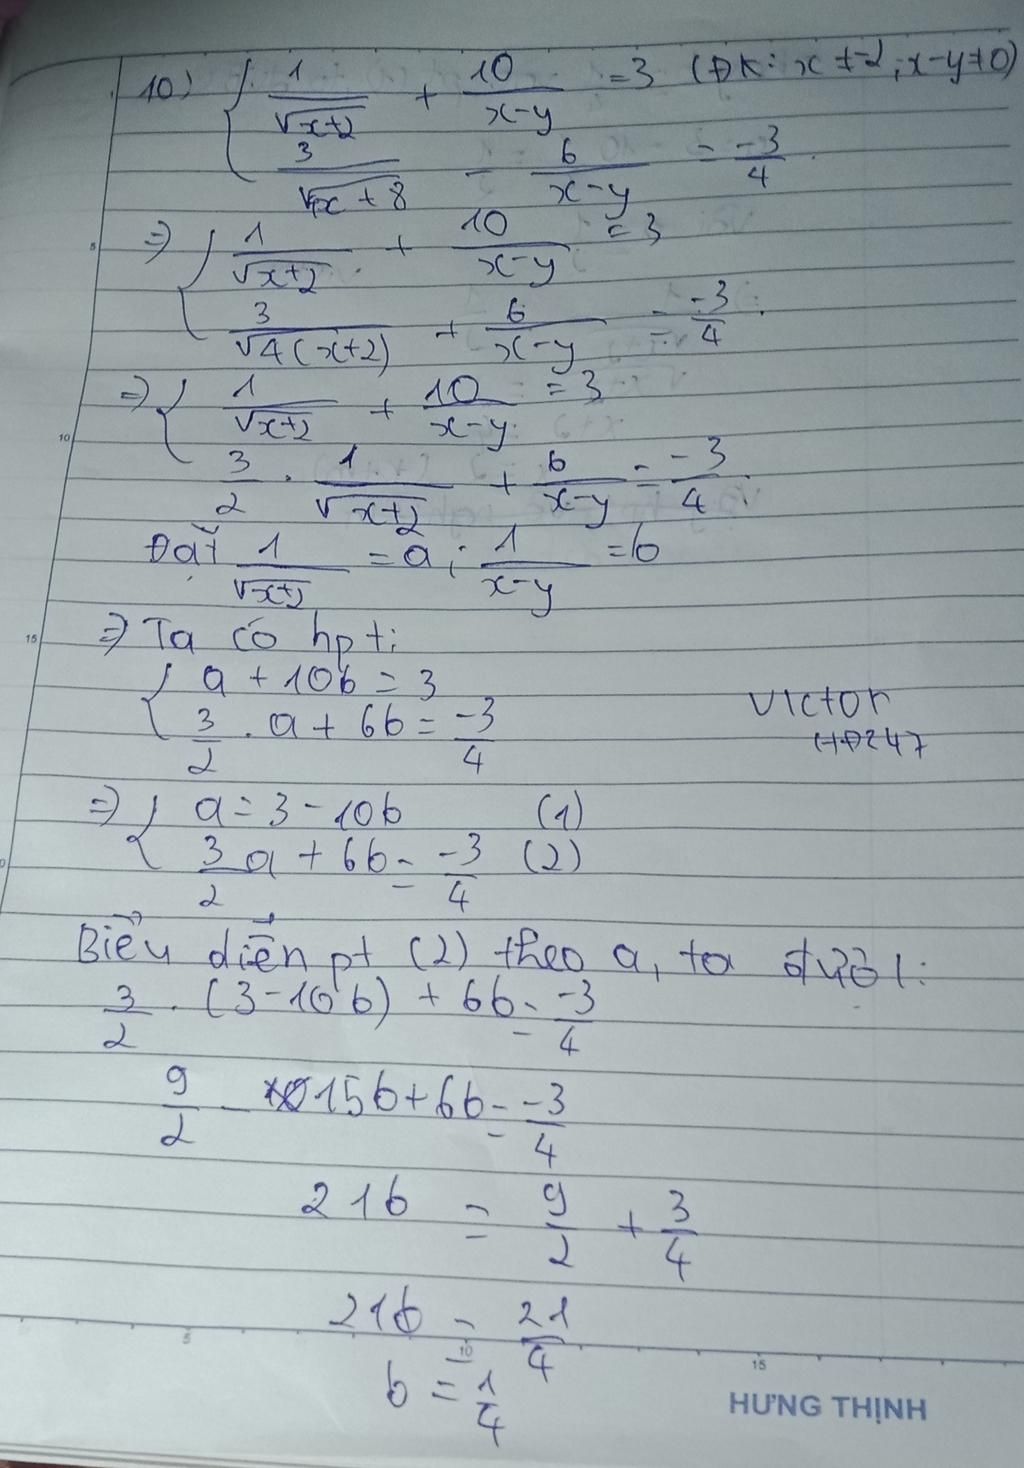 10) { 1/√(x+2) + 10/(x-y) = 3 (ĐK: x ≠ -2; x-y≠0)
3/√(4x+8) - 6/(x-y) = -3/4.
=> { 1/√(x+2) + 10/(x-y) = 3
3/√(4(x+2)) + 6/(x-y) = -3/4.
=> { 1/√(x+2) + 10/(x-y) = 3
3/2 . 1/√(x+2) + 6/(x-y) = -3/4.
Đặt 1/√(x+2) = a; 1/(x-y) = b
=> Ta có hpt:
{ a + 10b = 3
3/2 . a + 6b = -3/4
Victor
HĐ247
=> { a = 3 - 10b (1)
3/2 a + 6b = -3/4 (2)
Biểu diễn pt (2) theo a, ta được:
3/2 . (3 - 10b) + 6b = -3/4
9/2 - 15b + 6b = -3/4
21b = 9/2 + 3/4
21b = 21/4
b = 1/4
5
10
15
5
10
15
HƯNG THỊNH